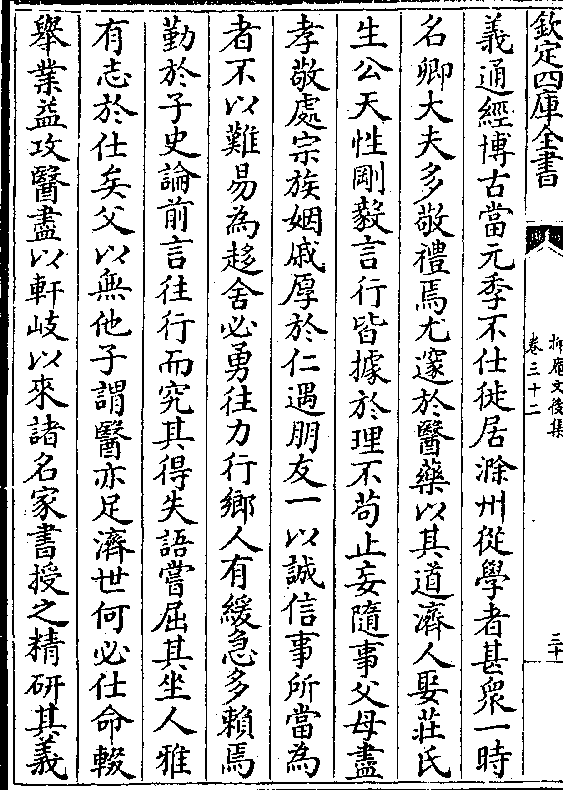 欽定四庫全書
抑庵文後集
卷三十二
三十
義通經博古當元季不仕徙居滁州從學者甚衆一時
名卿大夫多敬禮焉尤邃於醫藥以其道濟人娶莊氏
生公天性剛毅言行皆據於理不苟止妄隨事父母盡
孝敬處宗族姻戚厚於仁遇朋友一以誠信事所當為
者不以難易為趍舍必勇往力行鄉人有緩急多賴焉
勤於子史論前言往行而究其得失語嘗屈其坐人雅
有志於仕矣父以無他子謂醫亦足濟世何必仕命輟
舉業益攻醫盡以軒岐以來諸名家書授之精研其義